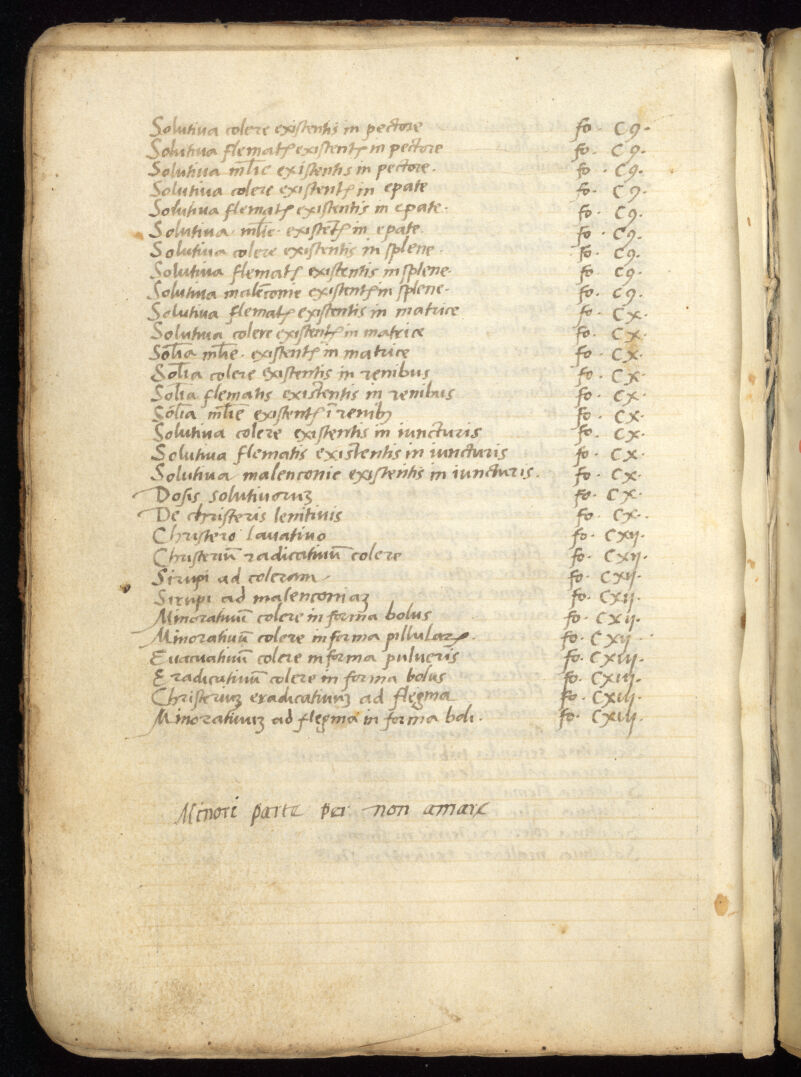 Solutiua colere existentis in pectore fo. C9.
Solutiua flematꝭ existentꝭ in pectore fo. C9.
Solutiua ml̄ie existentis in pectore. fo. C9.
Solutiua colere existentꝭ in epate fo. C9.
Solutiua flematꝭ existentis in epate. fo. C9.
Solutiua ml̄ie. existētꝭ in epate. fo. C9.
Solutiua colere existentis in splene. fo. C9.
Solutiua flematꝭ existentis in splene. fo. C9.
Solutiua malēconie existentꝭ in splene. fo. C9.
Solutiua flematꝭ existentis in matrice fo. CX.
Solutiua colere existentꝭ in matrice fo. CX.
Sol̄ia ml̄ie. existentꝭ in matrice fo. CX.
Sol̄ia colere existentis in renibus fo. CX.
Sol̄ia flematis existentis in renibus fo. CX.
Sol̄ia ml̄ie existentꝭ ī renibꝫ fo. CX.
Solutiua colere existentis in iuncturis fo. CX.
Solutiua flematis existentis in iuncturis fo. CX.
Solutiua malenconie existentis in iuncturis. fo. CX.
Dosis solutiuoruꝫ fo. CX.
De christeris lenitiuis fo. CX.
Christero lauatiuo fo. CXIJ.
Christeriū radicatiuū colere fo. CXIJ.
Sirupi ad coleram fo. CXIJ.
Sirupi ad malenconiaꝫ fo. CXIJ.
Minoratiuū colere in forma bolus fo. CXIJ.
Minoratiuū colere in forma pillularꝝ. fo. CXIJ.
Euacuatiuū colere in forma pulueris fo. CXIIJ.
Eradicatiuū colere in forma bolus fo. CXIIJ.
Christeriuꝫ eradicatiuuꝫ ad flegma fo. CXIIJ.
Minoratiuuꝫ ad flegma in forma boli. fo. CXIIJ.
Minori parte per non amare